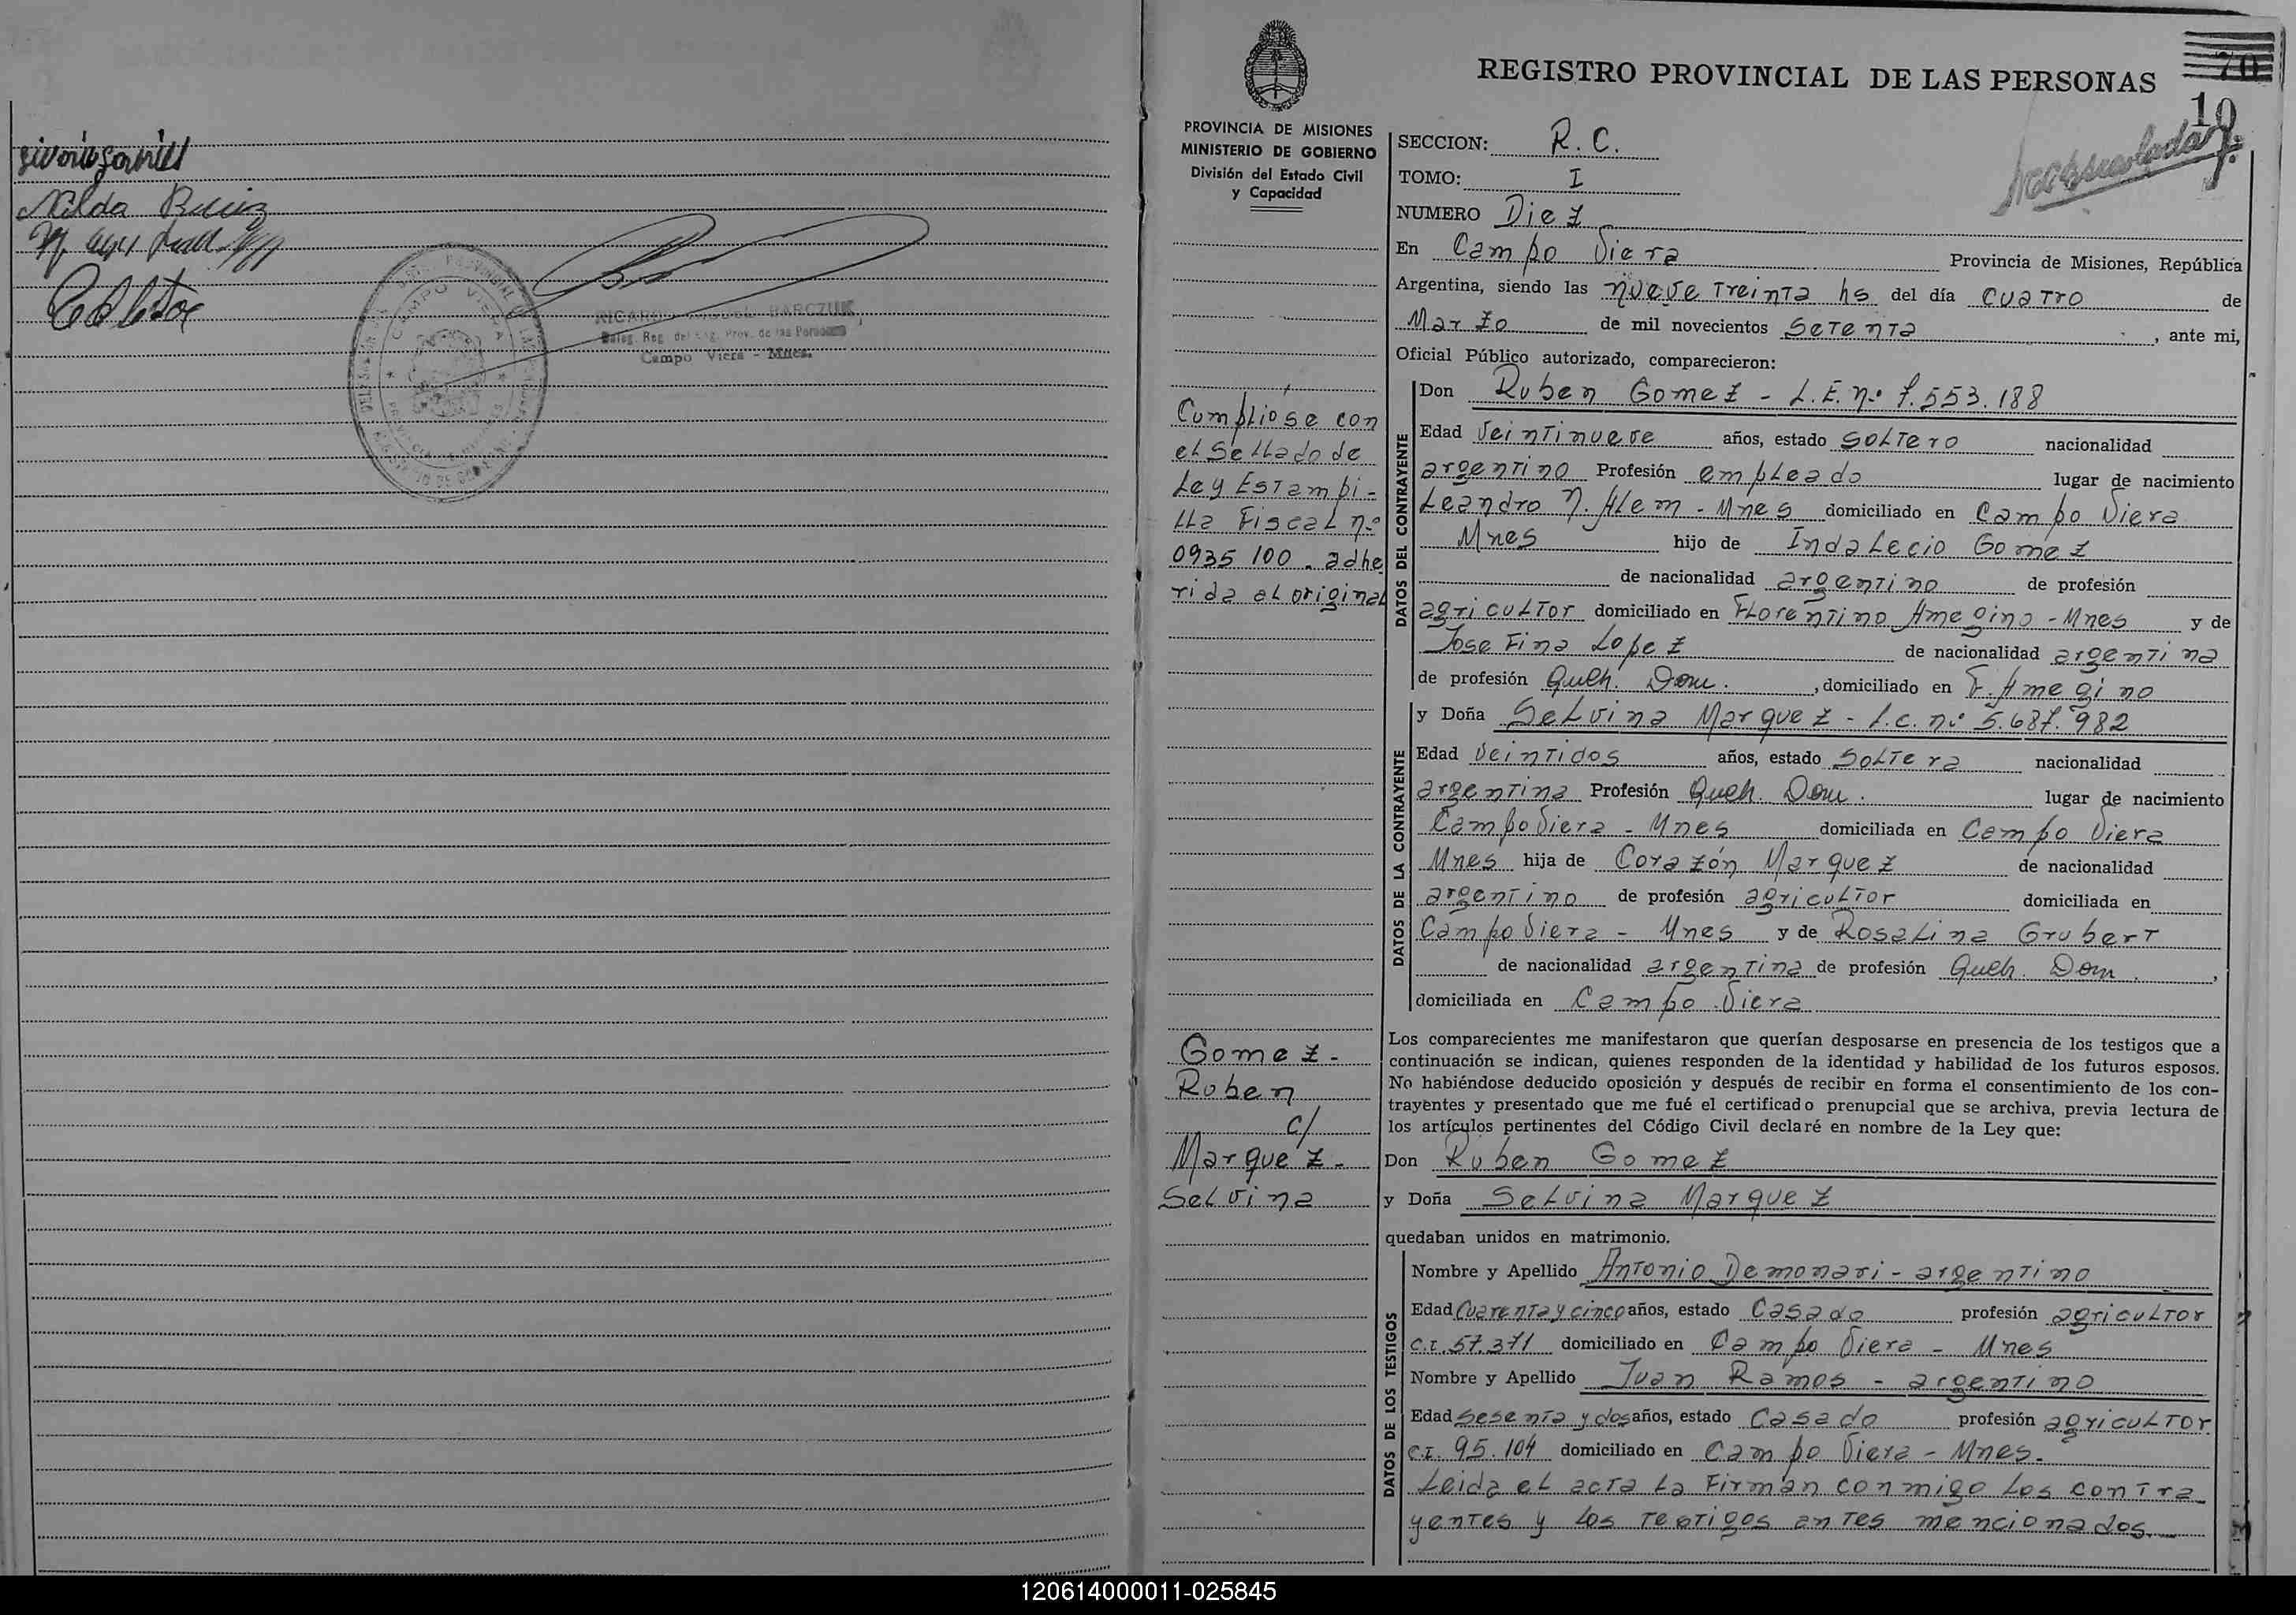 Nilda
CAMPO VIERA
RICARDO MIGUEL BARCZUK
Deleg. Reg. del Reg. Prov. de las Personas
Campo Viera - Mnes.
REGISTRO PROVINCIAL DE LAS PERSONAS
70
10
PROVINCIA DE MISIONES
MINISTERIO DE GOBIERNO
División del Estado Civil
y Capacidad
Cumpliose con
el Sellado de
Ley Estampi-
lla Fiscal nº
0935100. adhe
rida al original
Gomez-
Ruben
c/
Marquez-
Selvina
SECCION: R.C.
TOMO: I
NUMERO Diez
En Campo Viera Provincia de Misiones, República
Argentina, siendo las nueve treinta hs del día cuatro de
Marzo de mil novecientos setenta, ante mi,
Oficial Público autorizado, comparecieron:
DATOS DEL CONTRAYENTE
Don Ruben Gomez - L.E. nº 7.553.188
Edad Veintinueve años, estado soltero nacionalidad
argentino Profesión empleado lugar de nacimiento
Leandro N. Alem - Mnes domiciliado en Campo Viera
Mnes hijo de Indalecio Gomez
de nacionalidad argentino de profesión
agricultor domiciliado en Florentino Amegino - Mnes y de
Josefina Lopez de nacionalidad argentina
de profesión Queh. Dom., domiciliado en F. Amegino
DATOS DE LA CONTRAYENTE
y Doña Selvina Marquez - L.C. nº 5.687.982
Edad Veintidos años, estado Soltera nacionalidad
argentina Profesión Queh. Dom. lugar de nacimiento
Campo Viera - Mnes domiciliada en Campo Viera
Mnes hija de Corazón Marquez de nacionalidad
argentino de profesión agricultor domiciliada en
Campo Viera - Mnes y de Rosalina Grubert
de nacionalidad argentina de profesión Queh. Dom.,
domiciliada en Campo Viera
Los comparecientes me manifestaron que querían desposarse en presencia de los testigos que a
continuación se indican, quienes responden de la identidad y habilidad de los futuros esposos.
No habiéndose deducido oposición y después de recibir en forma el consentimiento de los con-
trayentes y presentado que me fué el certificado prenupcial que se archiva, previa lectura de
los artículos pertinentes del Código Civil declaré en nombre de la Ley que:
Don Ruben Gomez
y Doña Selvina Marquez
quedaban unidos en matrimonio.
DATOS DE LOS TESTIGOS
Nombre y Apellido Antonio Demonari - argentino
Edad Cuarenta y cinco años, estado Casado profesión agricultor
C.I. 57.371 domiciliado en Campo Viera - Mnes
Nombre y Apellido Juan Ramos - argentino
Edad Sesenta y dos años, estado Casado profesión agricultor
C.I. 95.104 domiciliado en Campo Viera - Mnes.
Leida el acta la Firman conmigo los contra
yentes y los testigos antes mencionados.
120614000011-025845